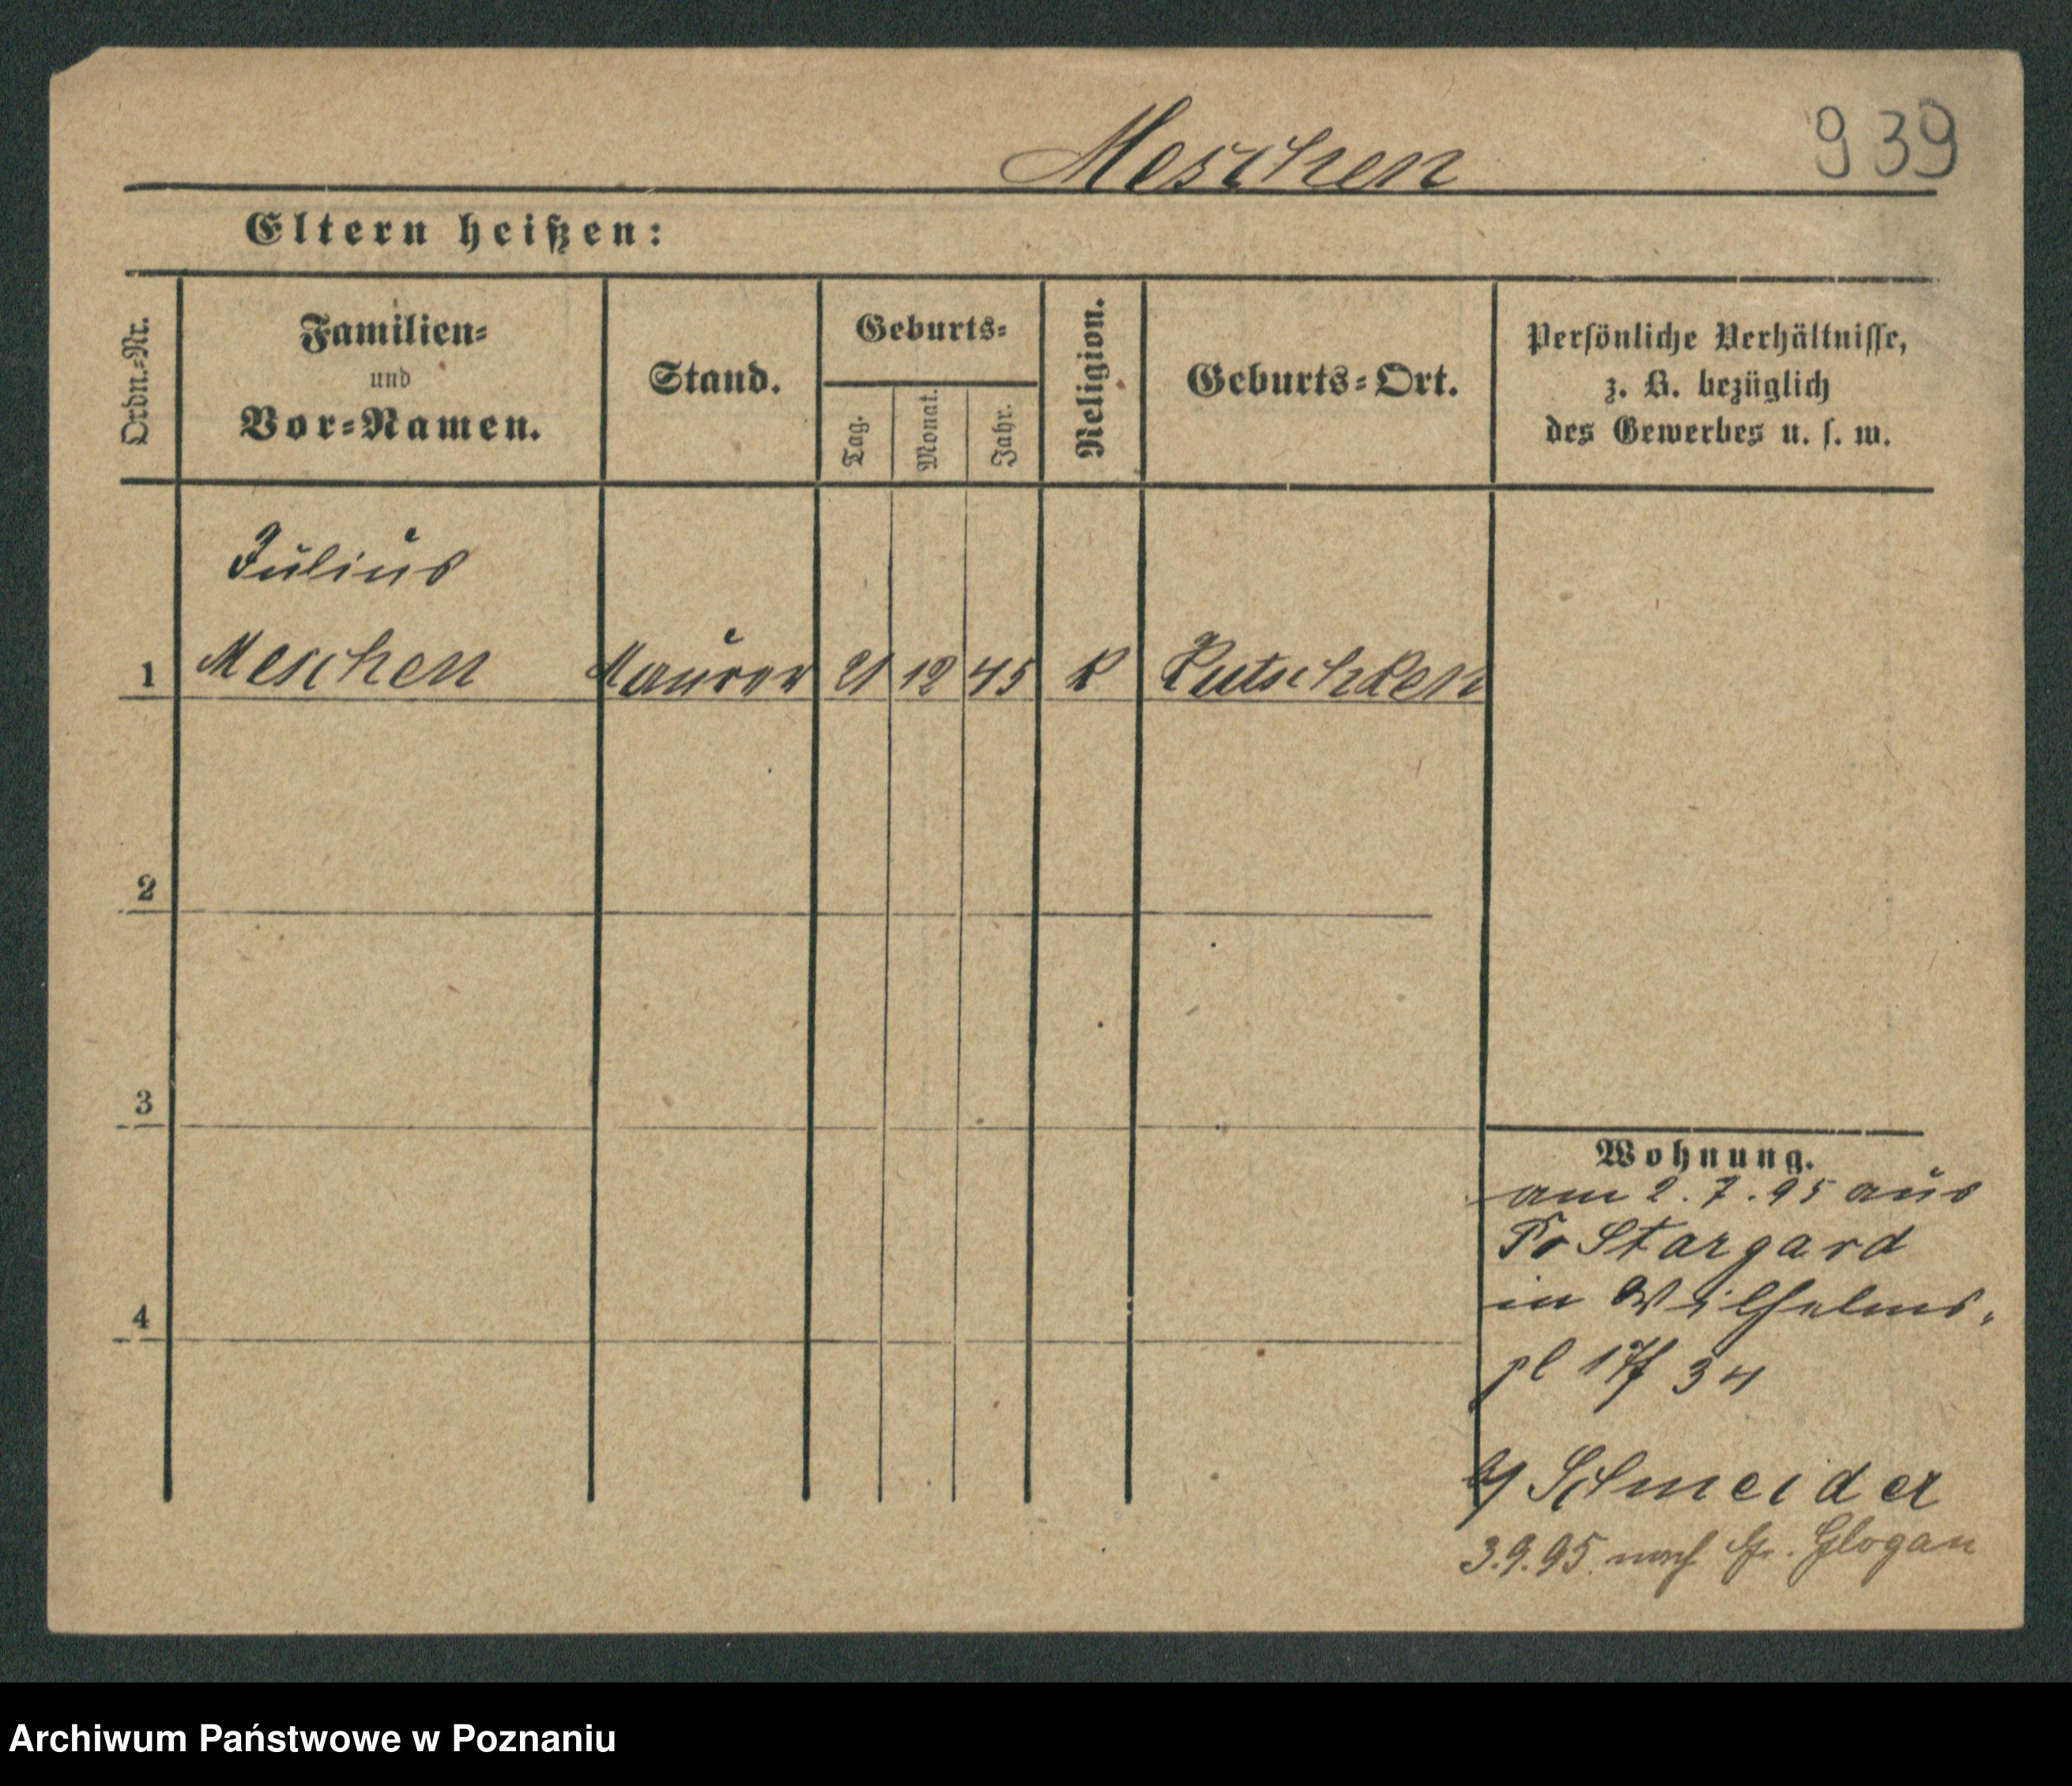 Meschen 939
Eltern heißen:
Ordn.-Nr. Familien- und Vor-Namen. Stand. Geburts- Tag. Monat. Jahr. Religion. Geburts-Ort. Persönliche Verhältnisse, z. B. bezüglich des Gewerbes u. s. w.
Julius
1 Meschen Maurer 21 12 45 K
2
3
4
Wohnung.
am 2.7.95 aus
Pr Stargard
in Wilhelms-
pl 17/ 34
b/ Schneider
3.9.95. nach Gr. Glogau
Archiwum Państwowe w Poznaniu